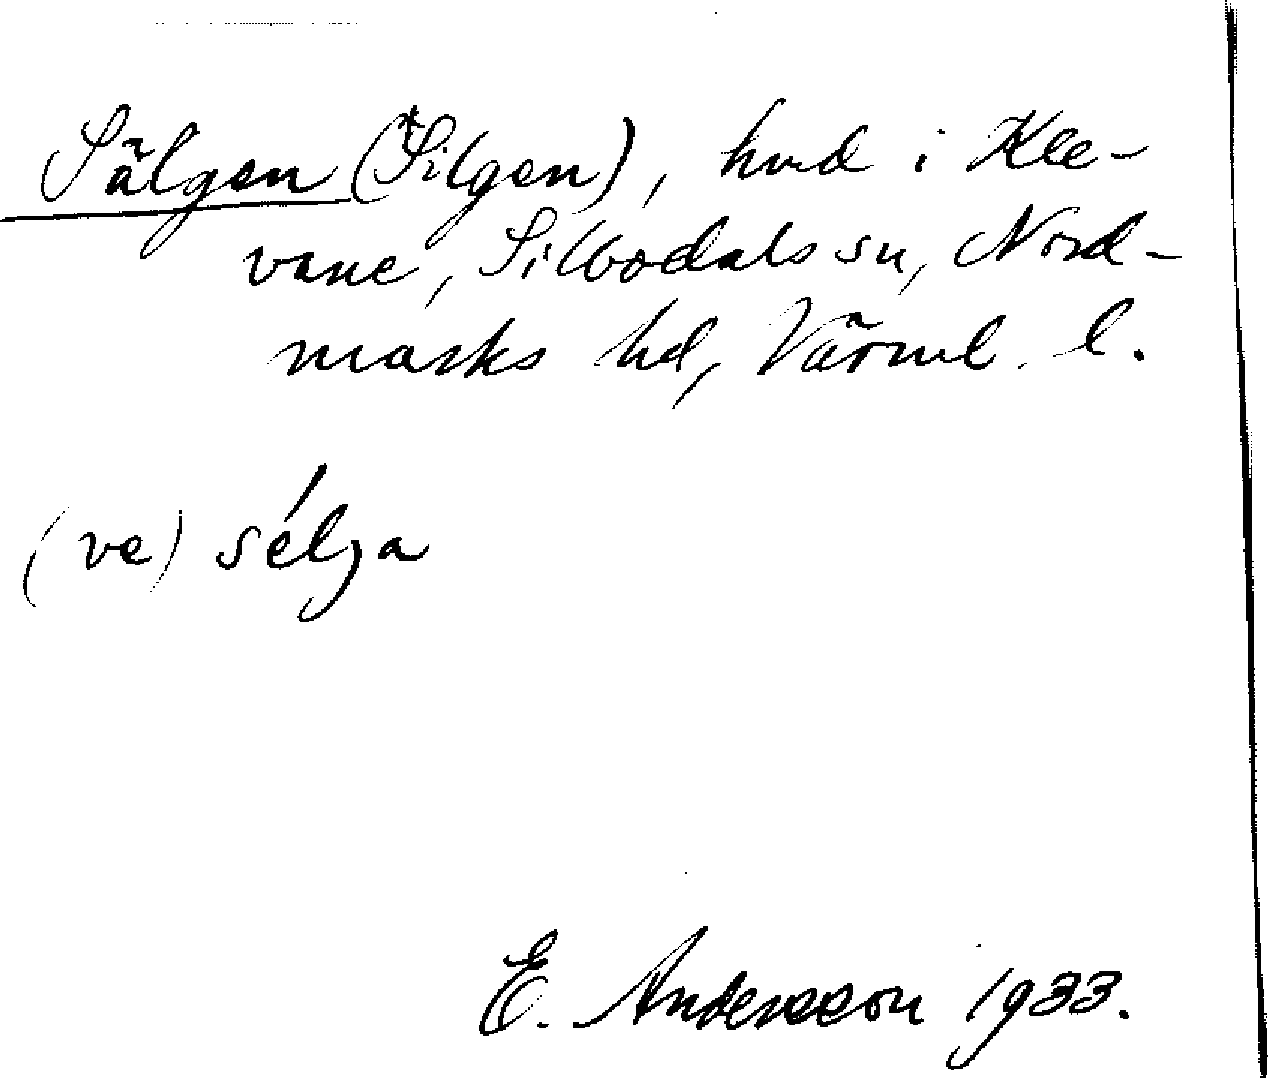 Sälgen (*Silgen), hmd i Kle-
vane, Silbodals sn, Nord-
marks hd, Värml. l.
(ve) sélja
E. Andersson 1933.